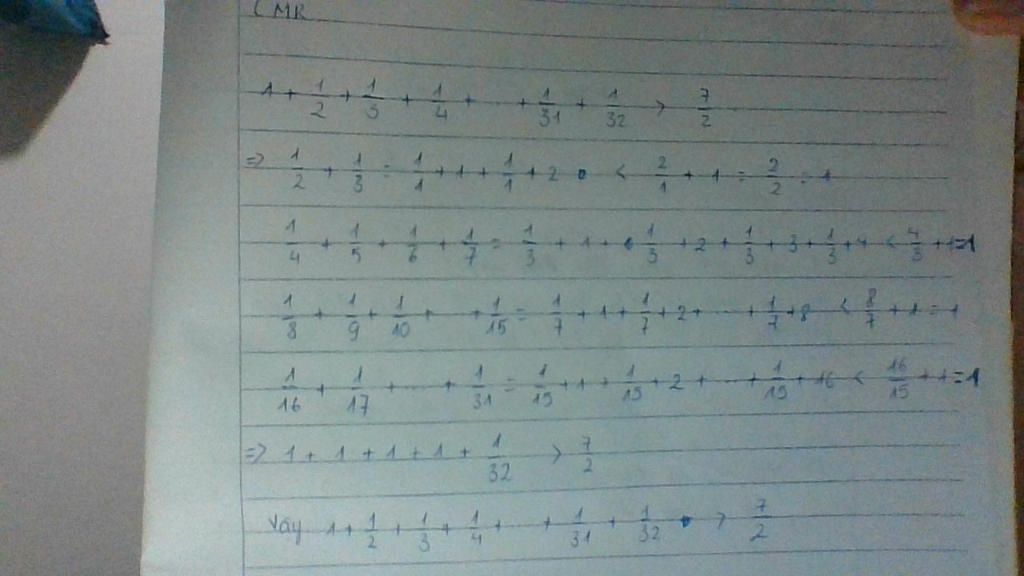 CMR
1 + 1/2 + 1/3 + 1/4 + ... + 1/31 + 1/32 > 7/2
=> 1/2 + 1/3 = 1/1 + 1 + 1/1 + 2 < 2/1 + 1 = 2/2 = 1
1/4 + 1/5 + 1/6 + 1/7 = 1/3 + 1 + 1/3 + 2 + 1/3 + 3 + 1/3 + 4 < 4/3 + 1 = 1
1/8 + 1/9 + 1/10 + ... + 1/15 = 1/7 + 1 + 1/7 + 2 + ... + 1/7 + 8 < 8/7 + 1 = 1
1/16 + 1/17 + ... + 1/31 = 1/15 + 1 + 1/15 + 2 + ... + 1/15 + 16 < 16/15 + 1 = 1
=> 1 + 1 + 1 + 1 + 1/32 > 7/2
Vậy 1 + 1/2 + 1/3 + 1/4 + ... + 1/31 + 1/32 > 7/2